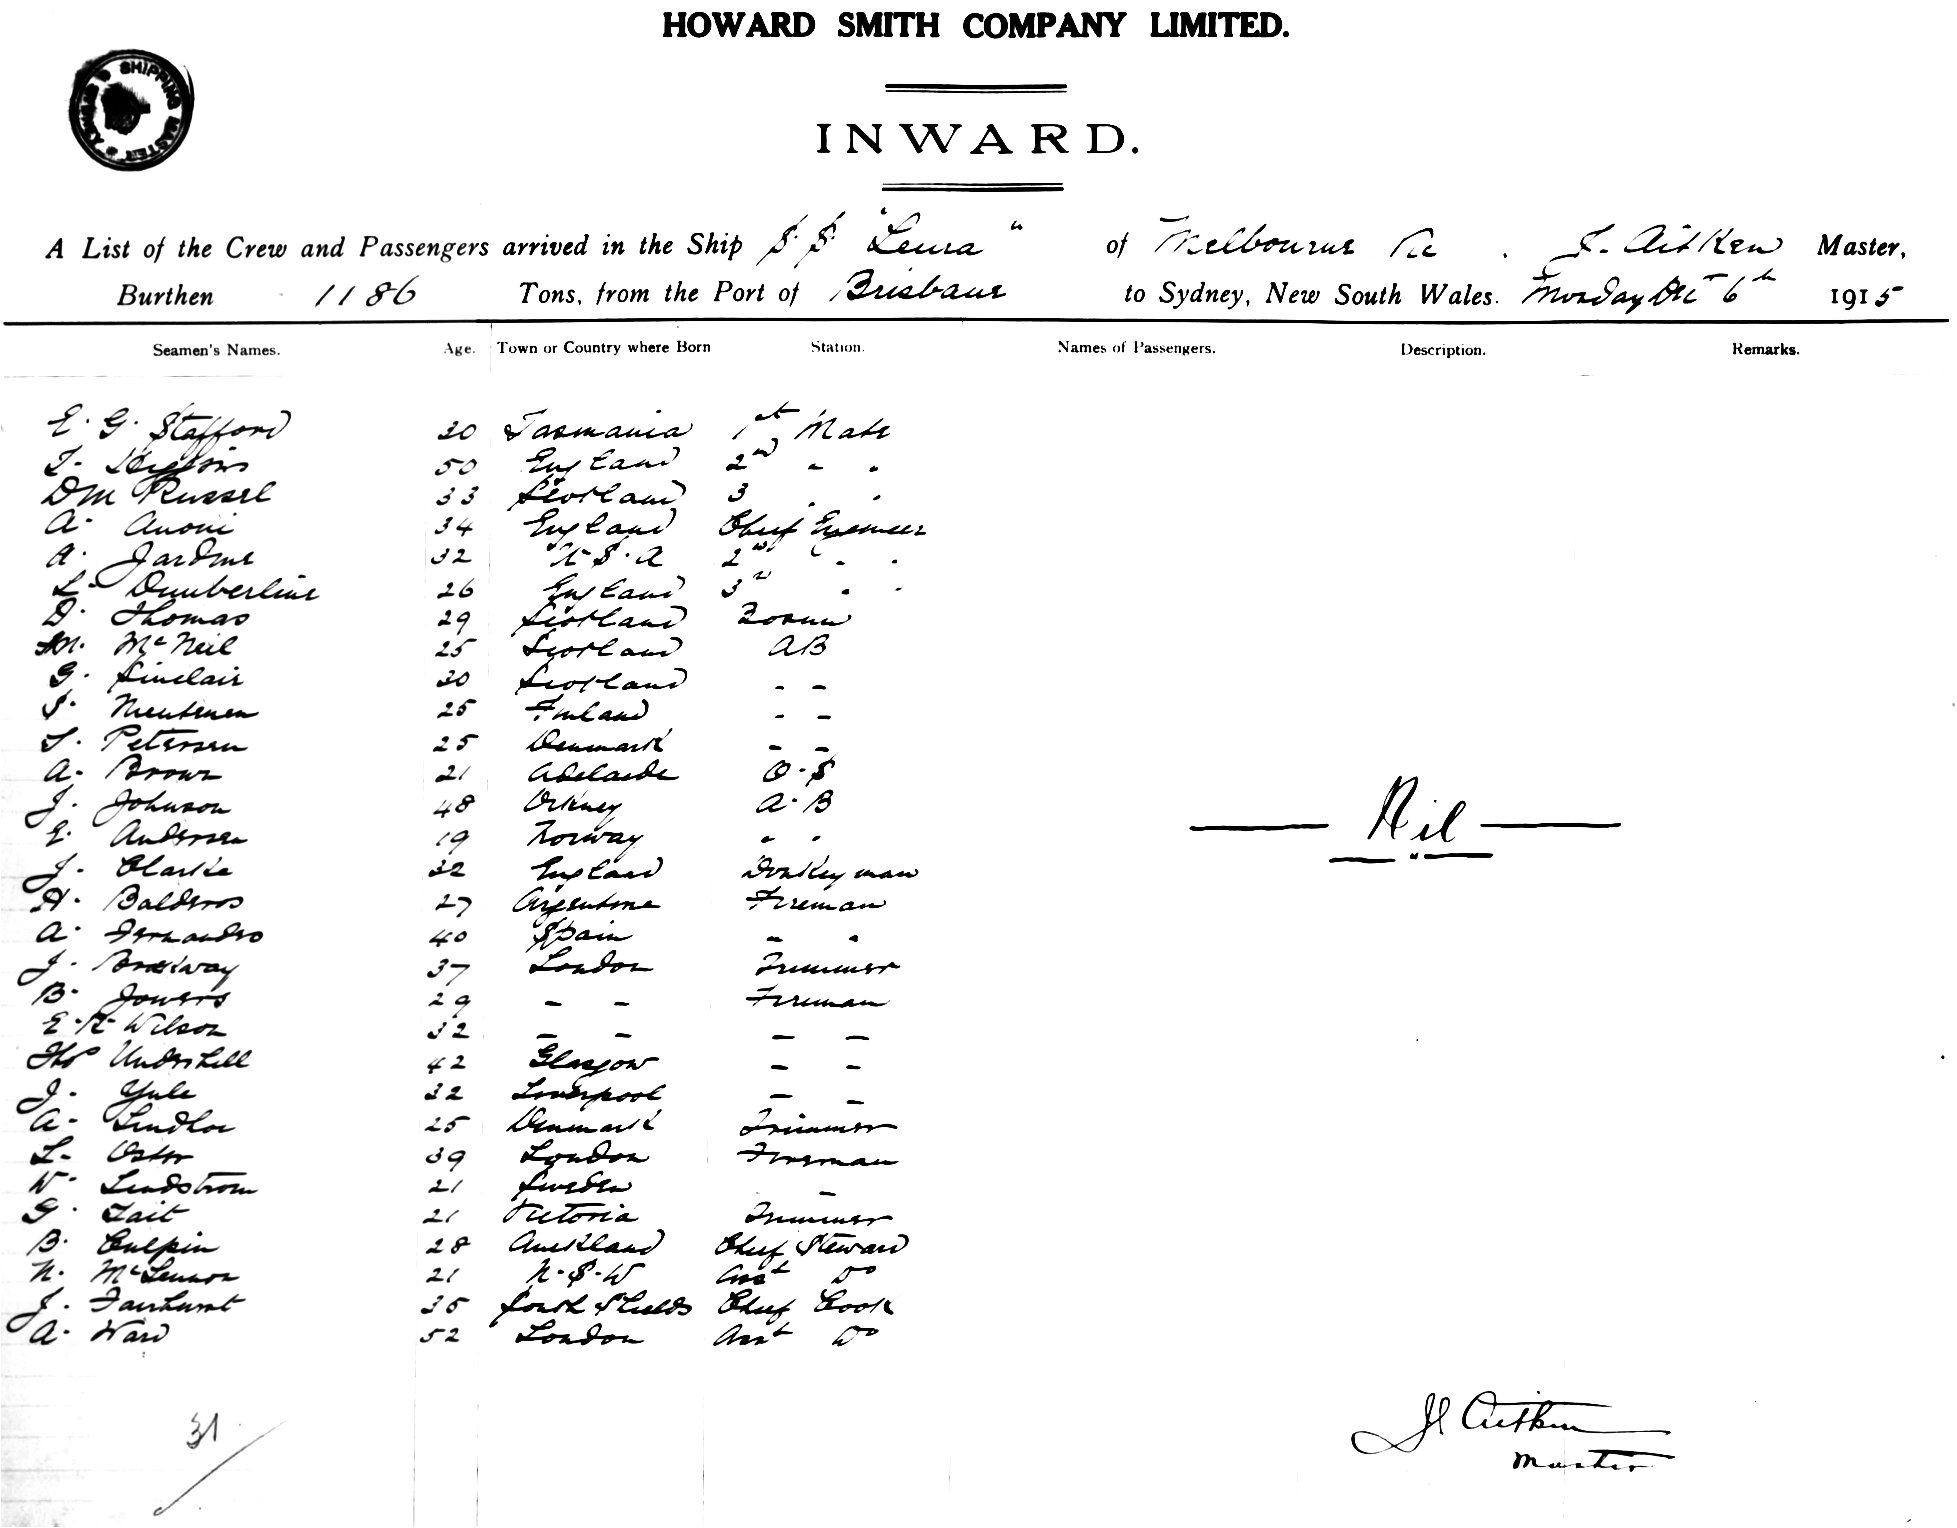 HOWARD SMITH COMPANY LIMITED.
SYDNEY SHIPPING MASTER
INWARD.
A List of the Crew and Passengers arrived in the Ship S.S "Leura" of Melbourne Vic. J. Aitken Master,
Burthen 1186 Tons, from the Port of Brisbane to Sydney, New South Wales. Monday Dec 6th 1915
Seamen's Names. Age. Town or Country where Born Station. Names of Passengers. Description. Remarks.
E. G. Stafford 30 Tasmania 1st Mate
T. Higgins 50 England 2nd " "
D M Russel 33 Scotland 3 " "
A. 34 England Chief Engineer
A. Jardine 32 U.S.A 2nd " "
L. Dumberline 26 England 3rd " "
D. Thomas 29 Scotland Bosun
M. McNeil 25 Scotland AB
G. Sinclair 30 Scotland - -
S. 25 Finland - -
S. Petersen 25 Denmark - -
A. Brown 21 Adelaide O.S
J. Johnson 48 Orkney A.B
E. Andersen 19 Norway " "
Nil
J. Clarke 32 England Donkeyman
H. Balderos 27 Argentine Fireman
A. Fernandro 40 Spain - "
J. Brokway 37 London Trimmer
B. Jowers 29 - - Fireman
E. R. Wilson 32 - - - -
Thos Underhill 42 Glasgow - -
J. Yule 32 Liverpool - -
A. Lindloe 25 Denmark Trimmer
L. Oster 39 London Fireman
W. Lindstrom 21 Sweden -
G. Tait 21 Victoria Trimmer
B. Culpin 28 Auckland Chief Steward
N. McLennon 21 N.S.W Asst Do
J. Fairhurst 35 South Shields Chief Cook
A. Ward 52 London Asst Do
31
J Aitken
Master